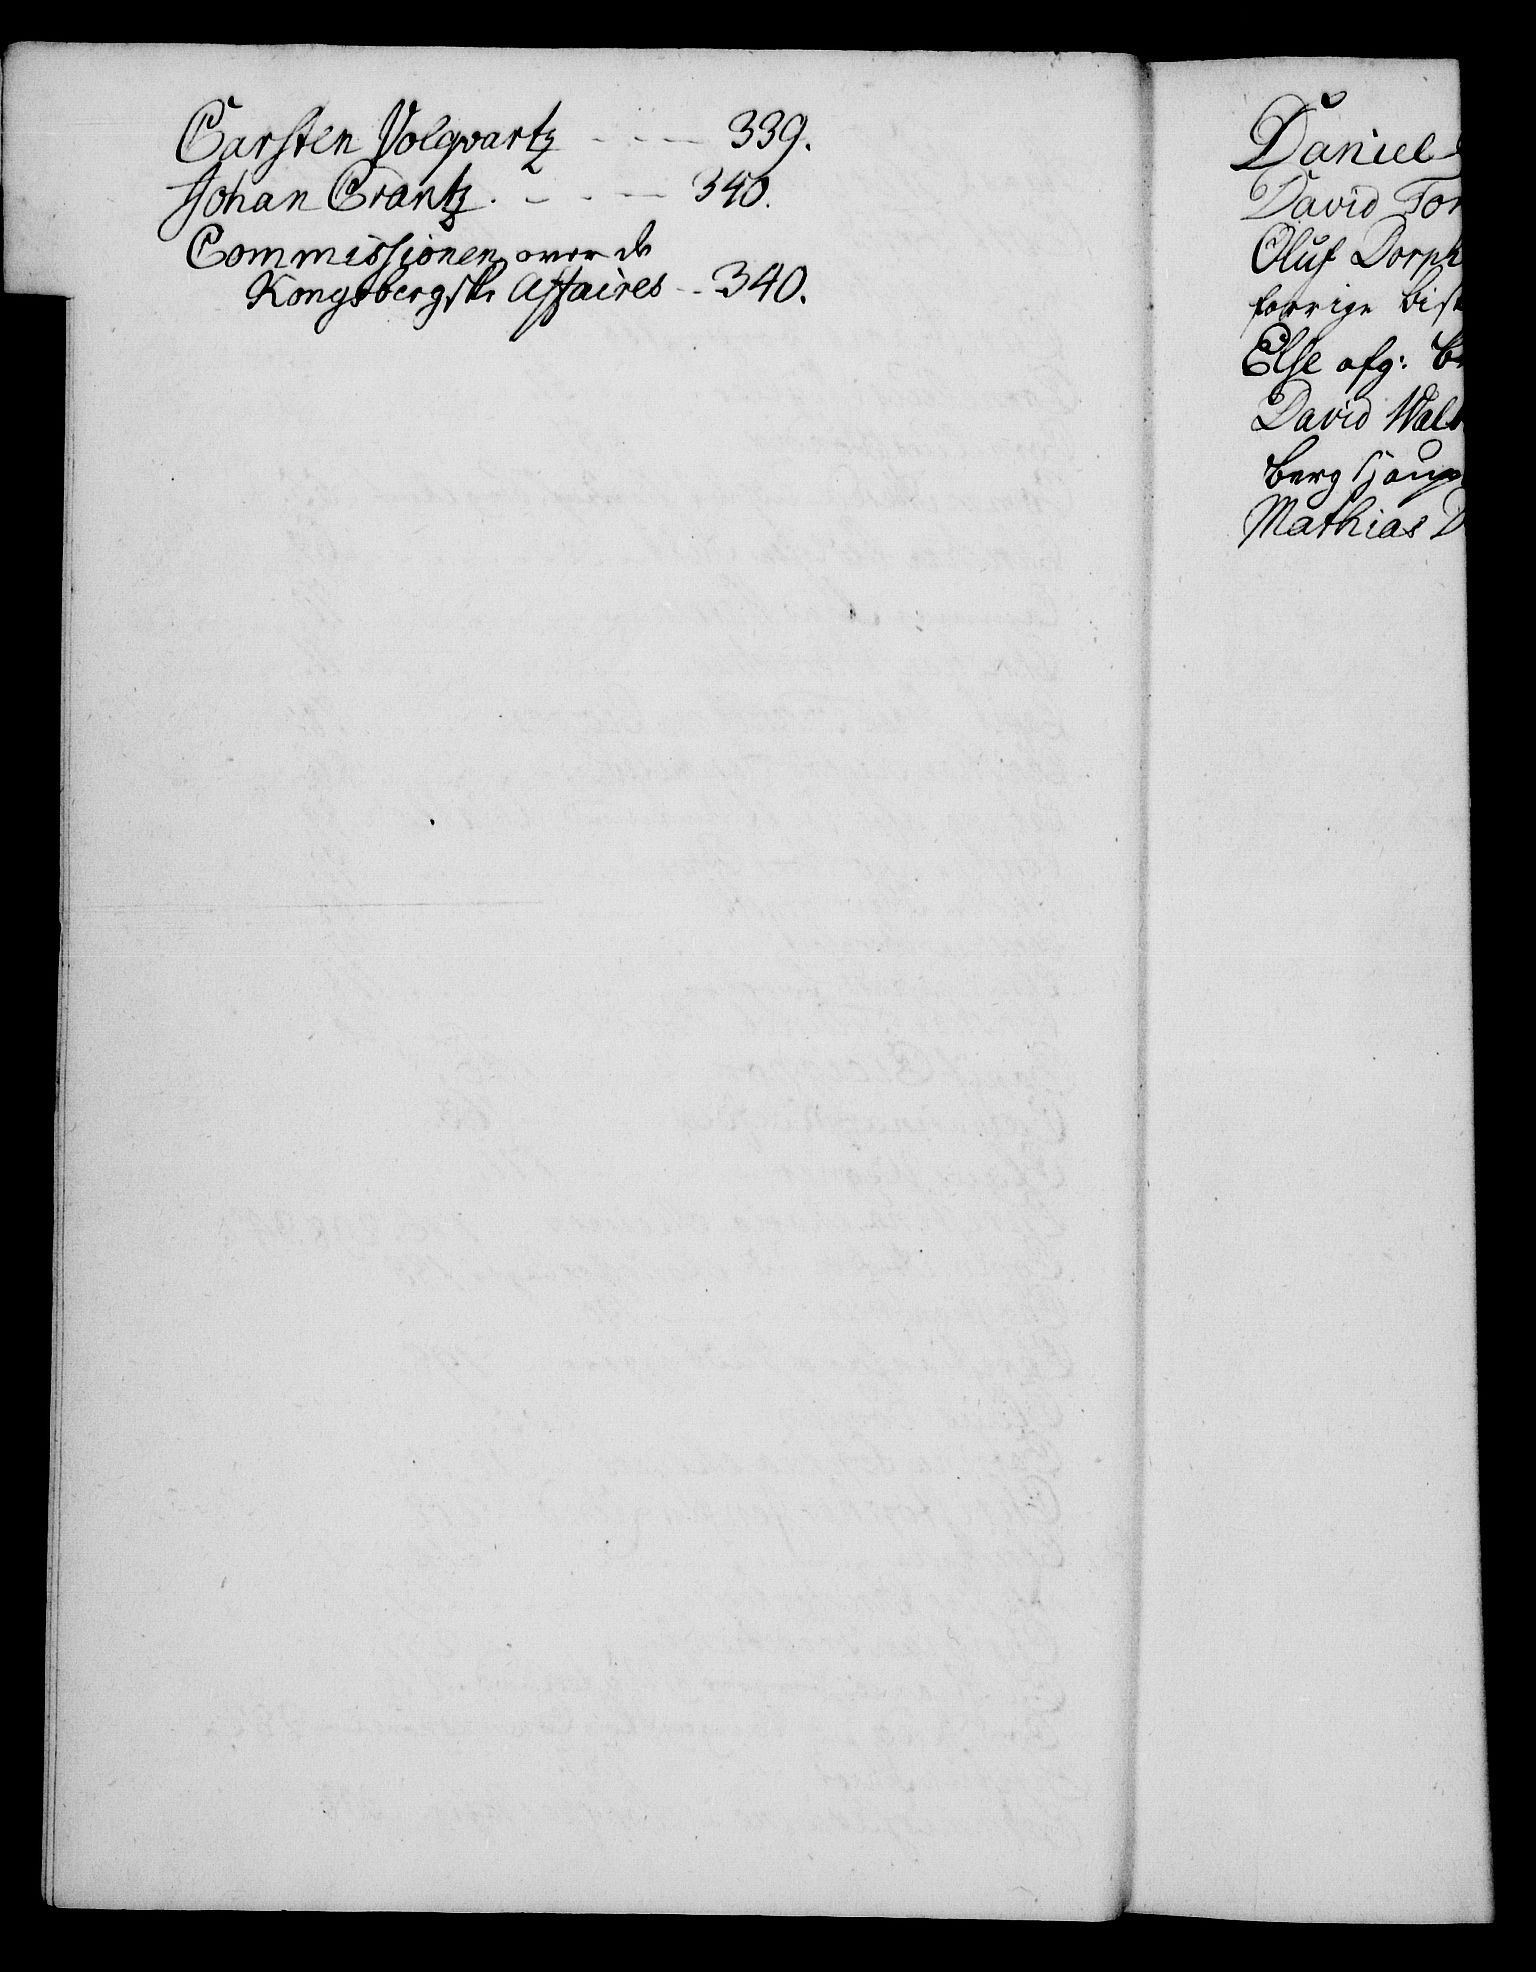 Carsten Volqvartz - - - - 339.
Johan Crantz. - - - - 340.
Commissionen over de
Kongsbergske Affaires - - 340.
Daniel
David Tor
Oluf Dorph
forrige Bisk
Else afg: B
David Walt
Berg Haup
Mathias D